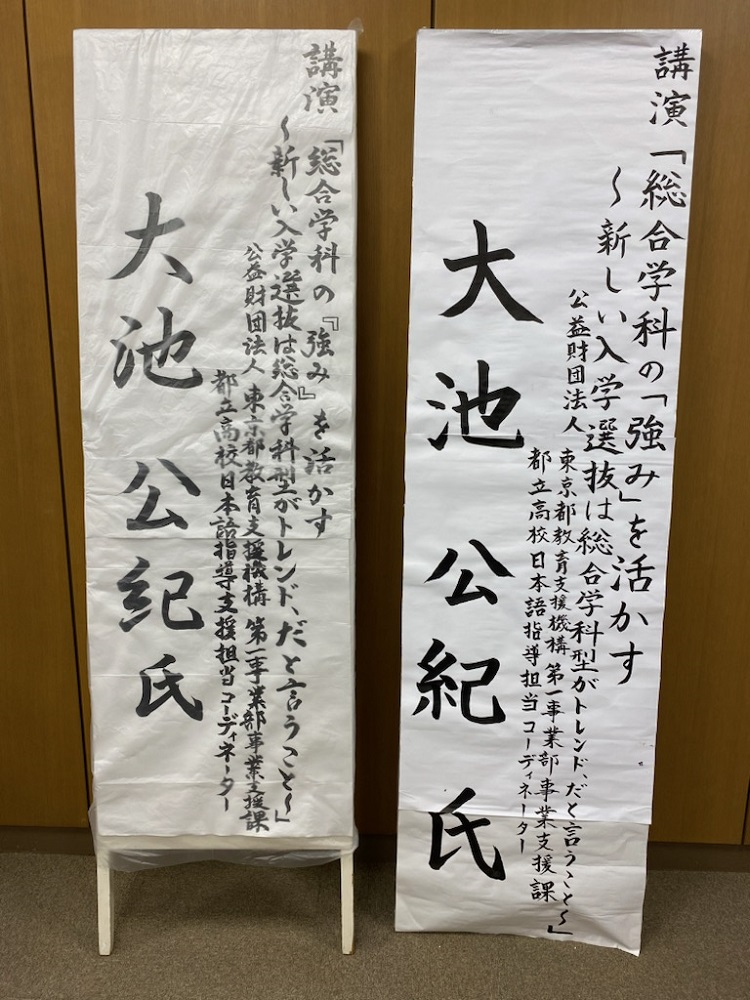 講演「総合学科の「強み」を活かす
~新しい入学選抜は総合学科型がトレンド、だと言うこと~」
公益財団法人 東京都教育支援機構 第一事業部事業支援課
都立高校日本語指導担当コーディネーター
大池 公紀 氏
講演「総合学科の『強み』を活かす
~新しい入学選抜は総合学科型がトレンド、だと言うこと~」
公益財団法人 東京都教育支援機構 第一事業部事業支援課
都立高校日本語指導支援担当コーディネーター
大池 公紀 氏